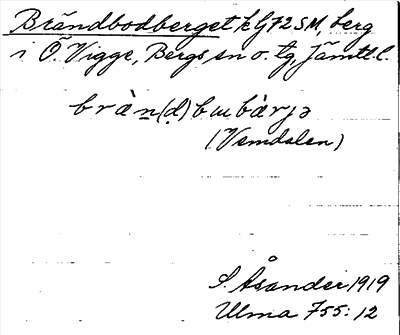 Brändbodberget k G72SM, berg
i Ö. Vigge, Bergs sn o. tg, Jämtl. l.
bràn(d)bɯbàrjə
(Vemdalen)
S. Åsander 1919
Ulma 755:12